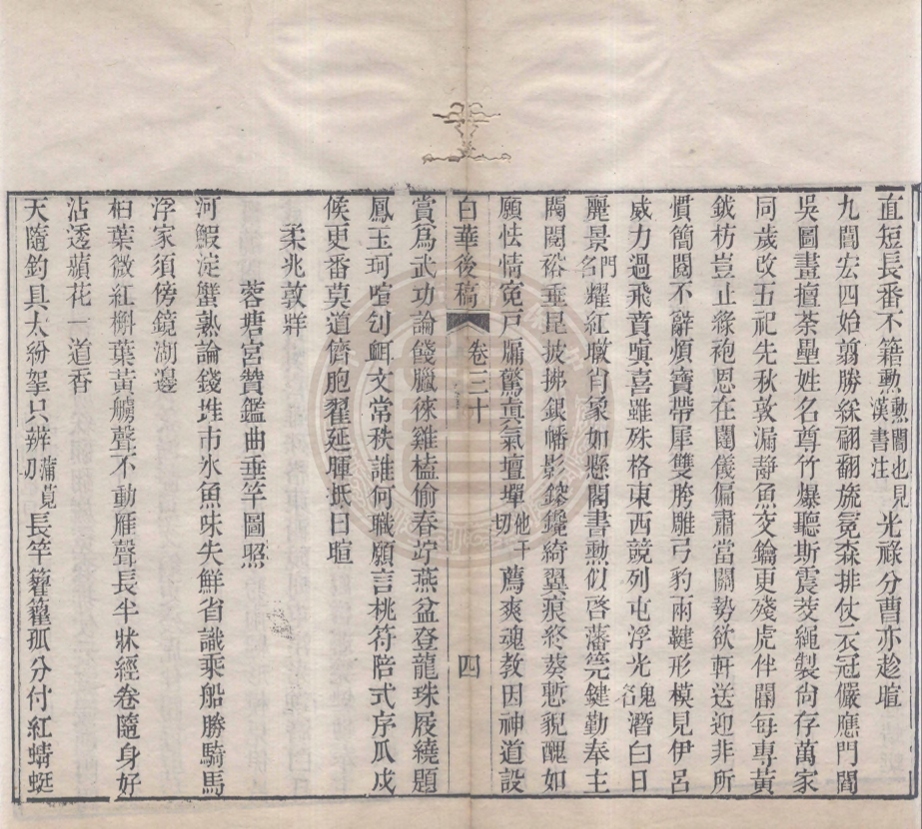 直短長番不籍勲勲閥也見漢書注光祿分曹亦趁暄
九閶宏四始翦勝綵翩翻旒冕森排仗衣冠儼應門閻
吳圖畫擅荼壘姓名尊竹爆聽斯震茭繩製尙存萬家
同歲改五祀先秋敦漏靜魚交鑰更殘虎伴閽每專黃
鉞枋豈止綠袍恩在闥儀偏肅當關勢欲軒送迎非所
慣簡閱不辭煩寶帶犀雙胯雕弓豹兩鞬形模見伊呂
威力過飛賁嗔喜雖殊格東西競列屯浮光鬼名潛白日
麗景門名耀紅暾肖象如懸閣書勲似啓藩筦鍵勤奉主
閥閱裕垂昆披拂銀幡影鎩鑱綺翼痕終葵慙貌醜如
願怯情寃戸牖驚眞氣壇墠他干切薦爽魂教因神道設
白華後稿 卷三十 四
賞爲武功論餞臘徠雞榼偷春竚燕盆登龍珠屐繞題
鳳玉珂喧刉衈文常秩誰何職願言桃符陪式序瓜戍
候更番莫道儕胞翟延暉抵日暄
柔兆敦牂
蓉塘宮贊鑑曲垂竿圖照
河鰕淀蟹熟論錢堆市氷魚味失鮮省識乘船勝騎馬
浮家須傍鏡湖邊
桕葉微紅槲葉黃艣聲不動雁聲長半牀經卷隨身好
沾透蘋花一道香
天隨釣具太紛挐只辨蒲莧切長竿籊籊孤分付紅蜻蜓